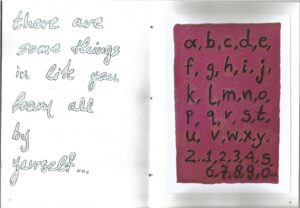 there are
some things
in life you
learn all
by
yourself...
a, b, c, d, e,
f, g, h, i, j,
k, l, m, n, o,
p, q, r, s, t,
u, v, w, x, y.
z..1, 2, 3, 4, 5
6, 7, 8, 9, 0..